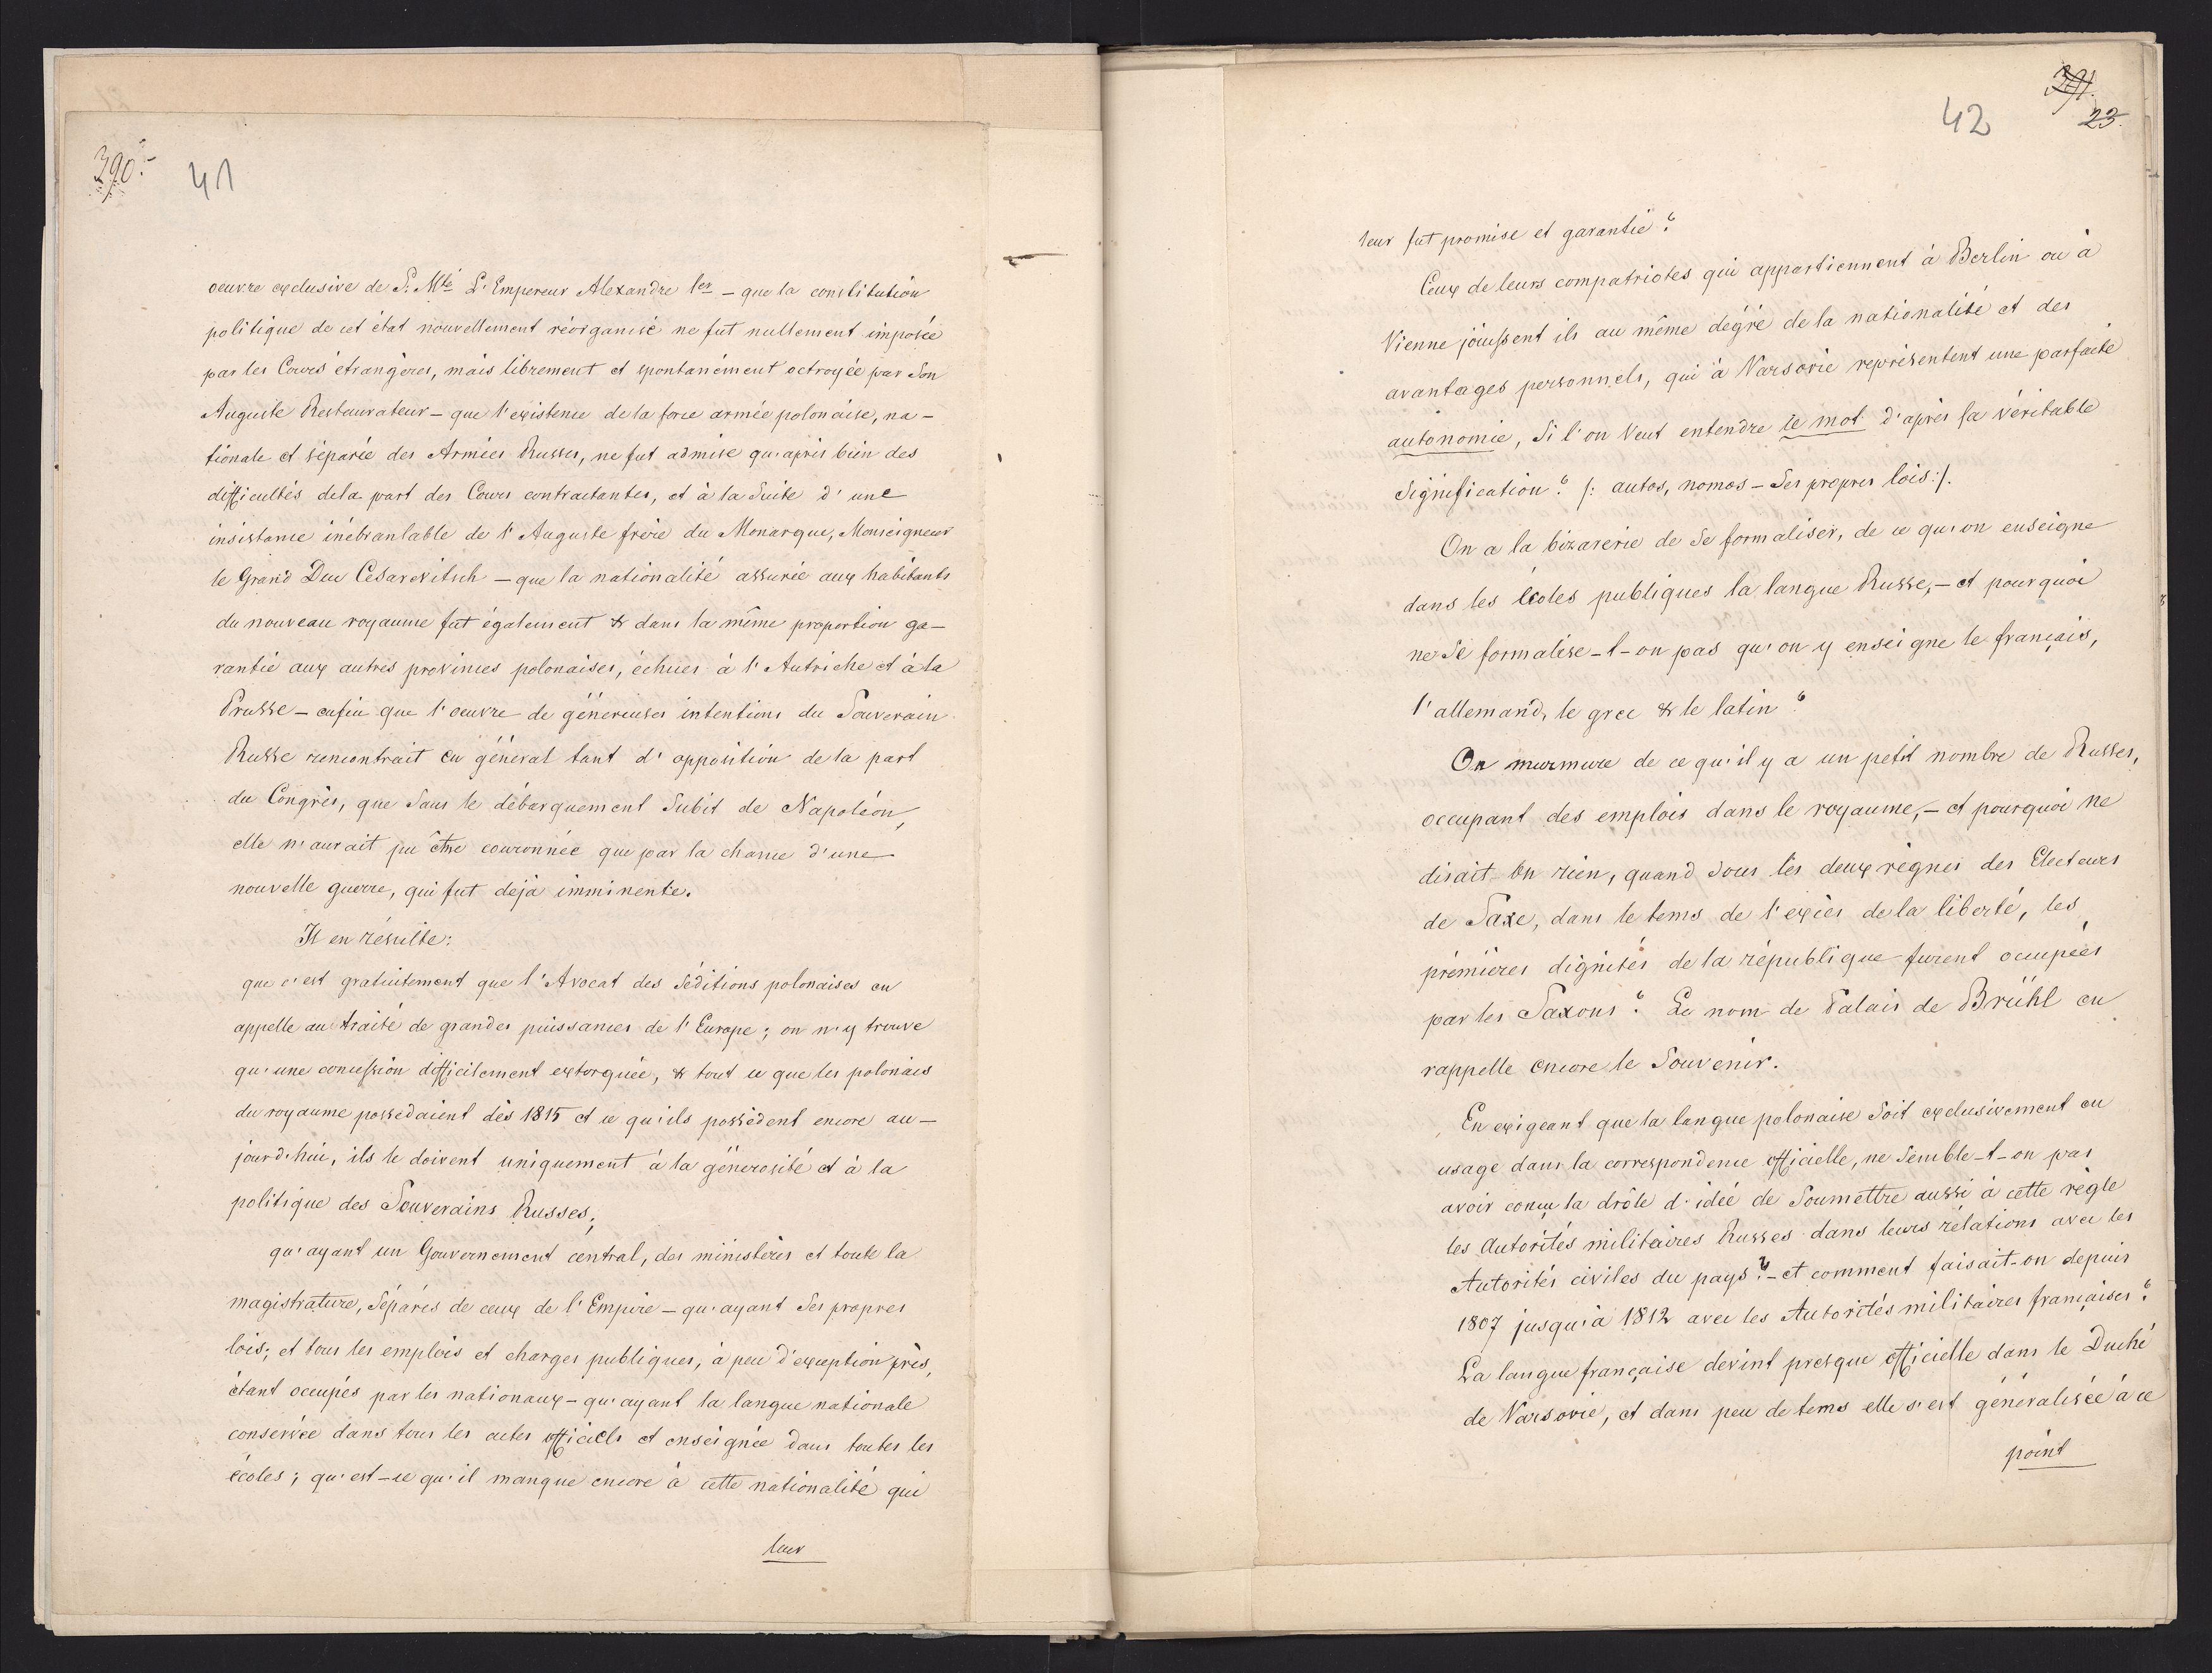 390.
41
oeuvre exclusive de S. Mté L'Empereur Alexandre 1er – que la constitution
politique de cet état nouvellement réorganisé ne fut nullement imposée
par les Cours étrangères, mais librement et spontanément octroyée par Son
Auguste Restaurateur – que l'existence de la force armée polonaise, na-
tionale et séparée des Armées Russes, ne fut admise qu'après bien des
difficultés de la part des Cours contractantes, et à la Suite d'une
insistance inébranlable de l'Auguste frère du Monarque, Monseigneur
le Grand Duc Césarevitsch – que la nationalité assurée aux habitants
du nouveau royaume fut également & dans la même proportion ga-
rantie aux autres provinces polonaises, échues à l'Autriche et à la
Prusse – enfin que l'oeuvre de généreuses intentions du Souverain
Russe rencontrait en général tant d'opposition de la part
du Congrès, que Sans le débarquement Subit de Napoléon,
elle n'aurait pu être couronnée que par la chance d'une
nouvelle guerre, qui fut dejà imminente.
Il en résulte:
que c'est gratuitement que l'Avocat des Séditions polonaises en
appelle au traité de grandes puissances de l'Europe; on n'y trouve
qu'une concession difficilement extorquée, & tout ce que les polonais
du royaume possedaient dès 1815 et ce qu'ils possèdent encore au-
jourd'hui, ils le doivent uniquement à la génerosité et à la
politique des Souverains Russes;
qu'ayant un Gouvernement central, des ministères et toute la
magistrature, Séparés de ceux de l'Empire – qu'ayant Ses propres
lois; et tous les emplois et charges publiques, à peu d'exception près,
étant occupés par les nationaux – qu'ayant la langue nationale
conservée dans tous les actes officiels et enseignée dans toutes les
écoles; qu'est-ce qu'il manque encore à cette nationalité qui
leur
391.
42
23.
leur fut promise et garantie?
Ceux de leurs compatriotes qui appartiennent à Berlin ou à
Vienne jouissent ils au même dégré de la nationalité et des
avantages personnels, qui à Varsovie représentent une parfaite
autonomie, Si l'on Veut entendre le mot d'après Sa véritable
Signification? /: autos, nomos – Ses propres lois:/.
On a la bizarerie de Se formaliser, de ce qu'on enseigne
dans les écoles publiques la langue Russe, – et pourquoi
ne Se formalise-t-on pas qu'on y enseigne le français,
l'allemand, le grec & le latin?
On murmure de ce qu'il y a un petit nombre de Russes,
occupant des emplois dans le royaume, – et pourquoi ne
disait on rien, quand Sous les deux règnes des Electeurs
de Saxe, dans le tems de l'excès de la liberté, les
prémières dignités de la république furent occupées
par les Saxons? Le nom de Palais de Brühl en
rappelle encore le Souvenir.
En exigeant que la langue polonaise Soit exclusivement en
usage dans la correspondence officielle, ne Semble-t-on pas
avoir conçu la drôle d'idée de Soumettre aussi à cette règle
les Autorités militaires Russes dans leurs rélations avec les
Autorités civiles du pays? – et comment faisait-on depuis
1807 jusqu'à 1812 avec les Autorités militaires françaises?
La langue française devint presque officielle dans le Duché
de Varsovie, et dans peu de tems elle s'est généralisée à ce
point